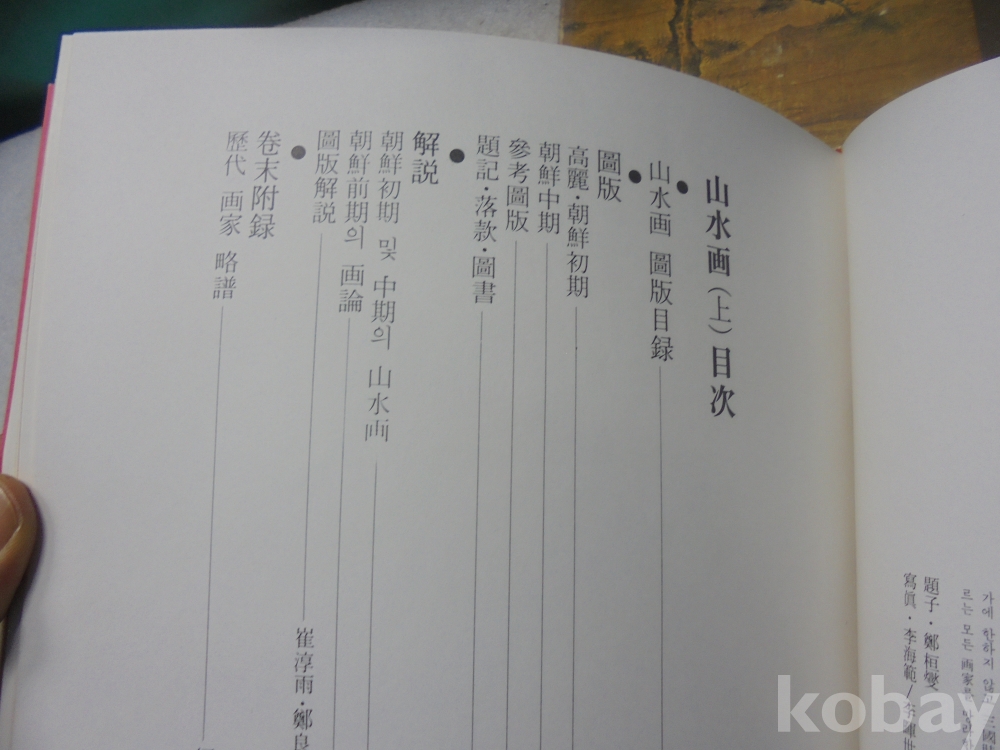 山水画(上) 目次
山水画 圖版目録
圖版
高麗・朝鮮初期
朝鮮中期
參考圖版
題記・落款・圖書
解説
朝鮮初期 및 中期의 山水画
朝鮮前期의 画論
圖版解説
崔淳雨・鄭良
卷末附録
歷代 画家 略譜
가에 한하지 않고 三國
르는 모든 画家를 망라
題子・鄭桓燮
寫眞・李海範/
kobay